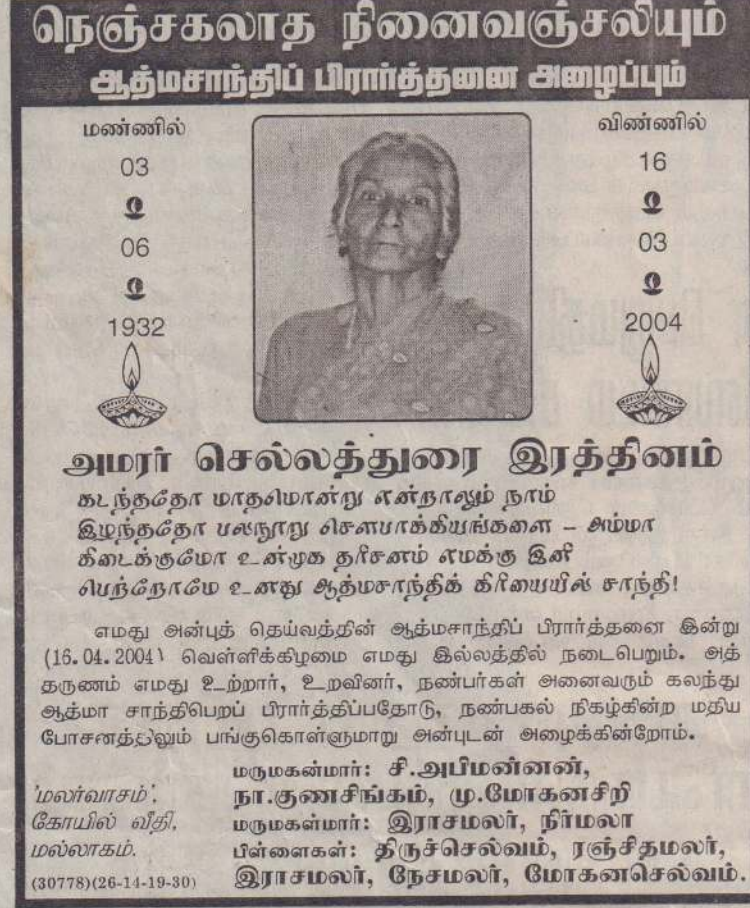 நெஞ்சகலாத நினைவஞ்சலியும்
ஆத்மசாந்திப் பிரார்த்தனை அழைப்பும்
மண்ணில்
03
06
1932
விண்ணில்
16
03
2004
அமரர் செல்லத்துரை இரத்தினம்
கடந்ததோ மாதமொன்று என்றாலும் நாம்
இழந்ததோ பலநூறு சௌபாக்கியங்களை – அம்மா
கிடைக்குமோ உன்முக தரிசனம் எமக்கு இனி
பெற்றோமே உனது ஆத்மசாந்திக் கிரியையில் சாந்தி!
எமது அன்புத் தெய்வத்தின் ஆத்மசாந்திப் பிரார்த்தனை இன்று
(16.04.2004) வெள்ளிக்கிழமை எமது இல்லத்தில் நடைபெறும். அத்
தருணம் எமது உற்றார், உறவினர், நண்பர்கள் அனைவரும் கலந்து
ஆத்மா சாந்திபெறப் பிரார்த்திப்பதோடு, நண்பகல் நிகழ்கின்ற மதிய
போசனத்திலும் பங்குகொள்ளுமாறு அன்புடன் அழைக்கின்றோம்.
மருமகன்மார்: சி.அபிமன்னன்,
நா.குணசிங்கம், மு.மோகனசிறி
மருமகள்மார்: இராசமலர், நிர்மலா
பிள்ளைகள்: திருச்செல்வம், ரஞ்சிதமலர்,
இராசமலர், நேசமலர், மோகனசெல்வம்.
'மலர்வாசம்',
கோயில் வீதி,
மல்லாகம்.
(30778)(26-14-19-30)